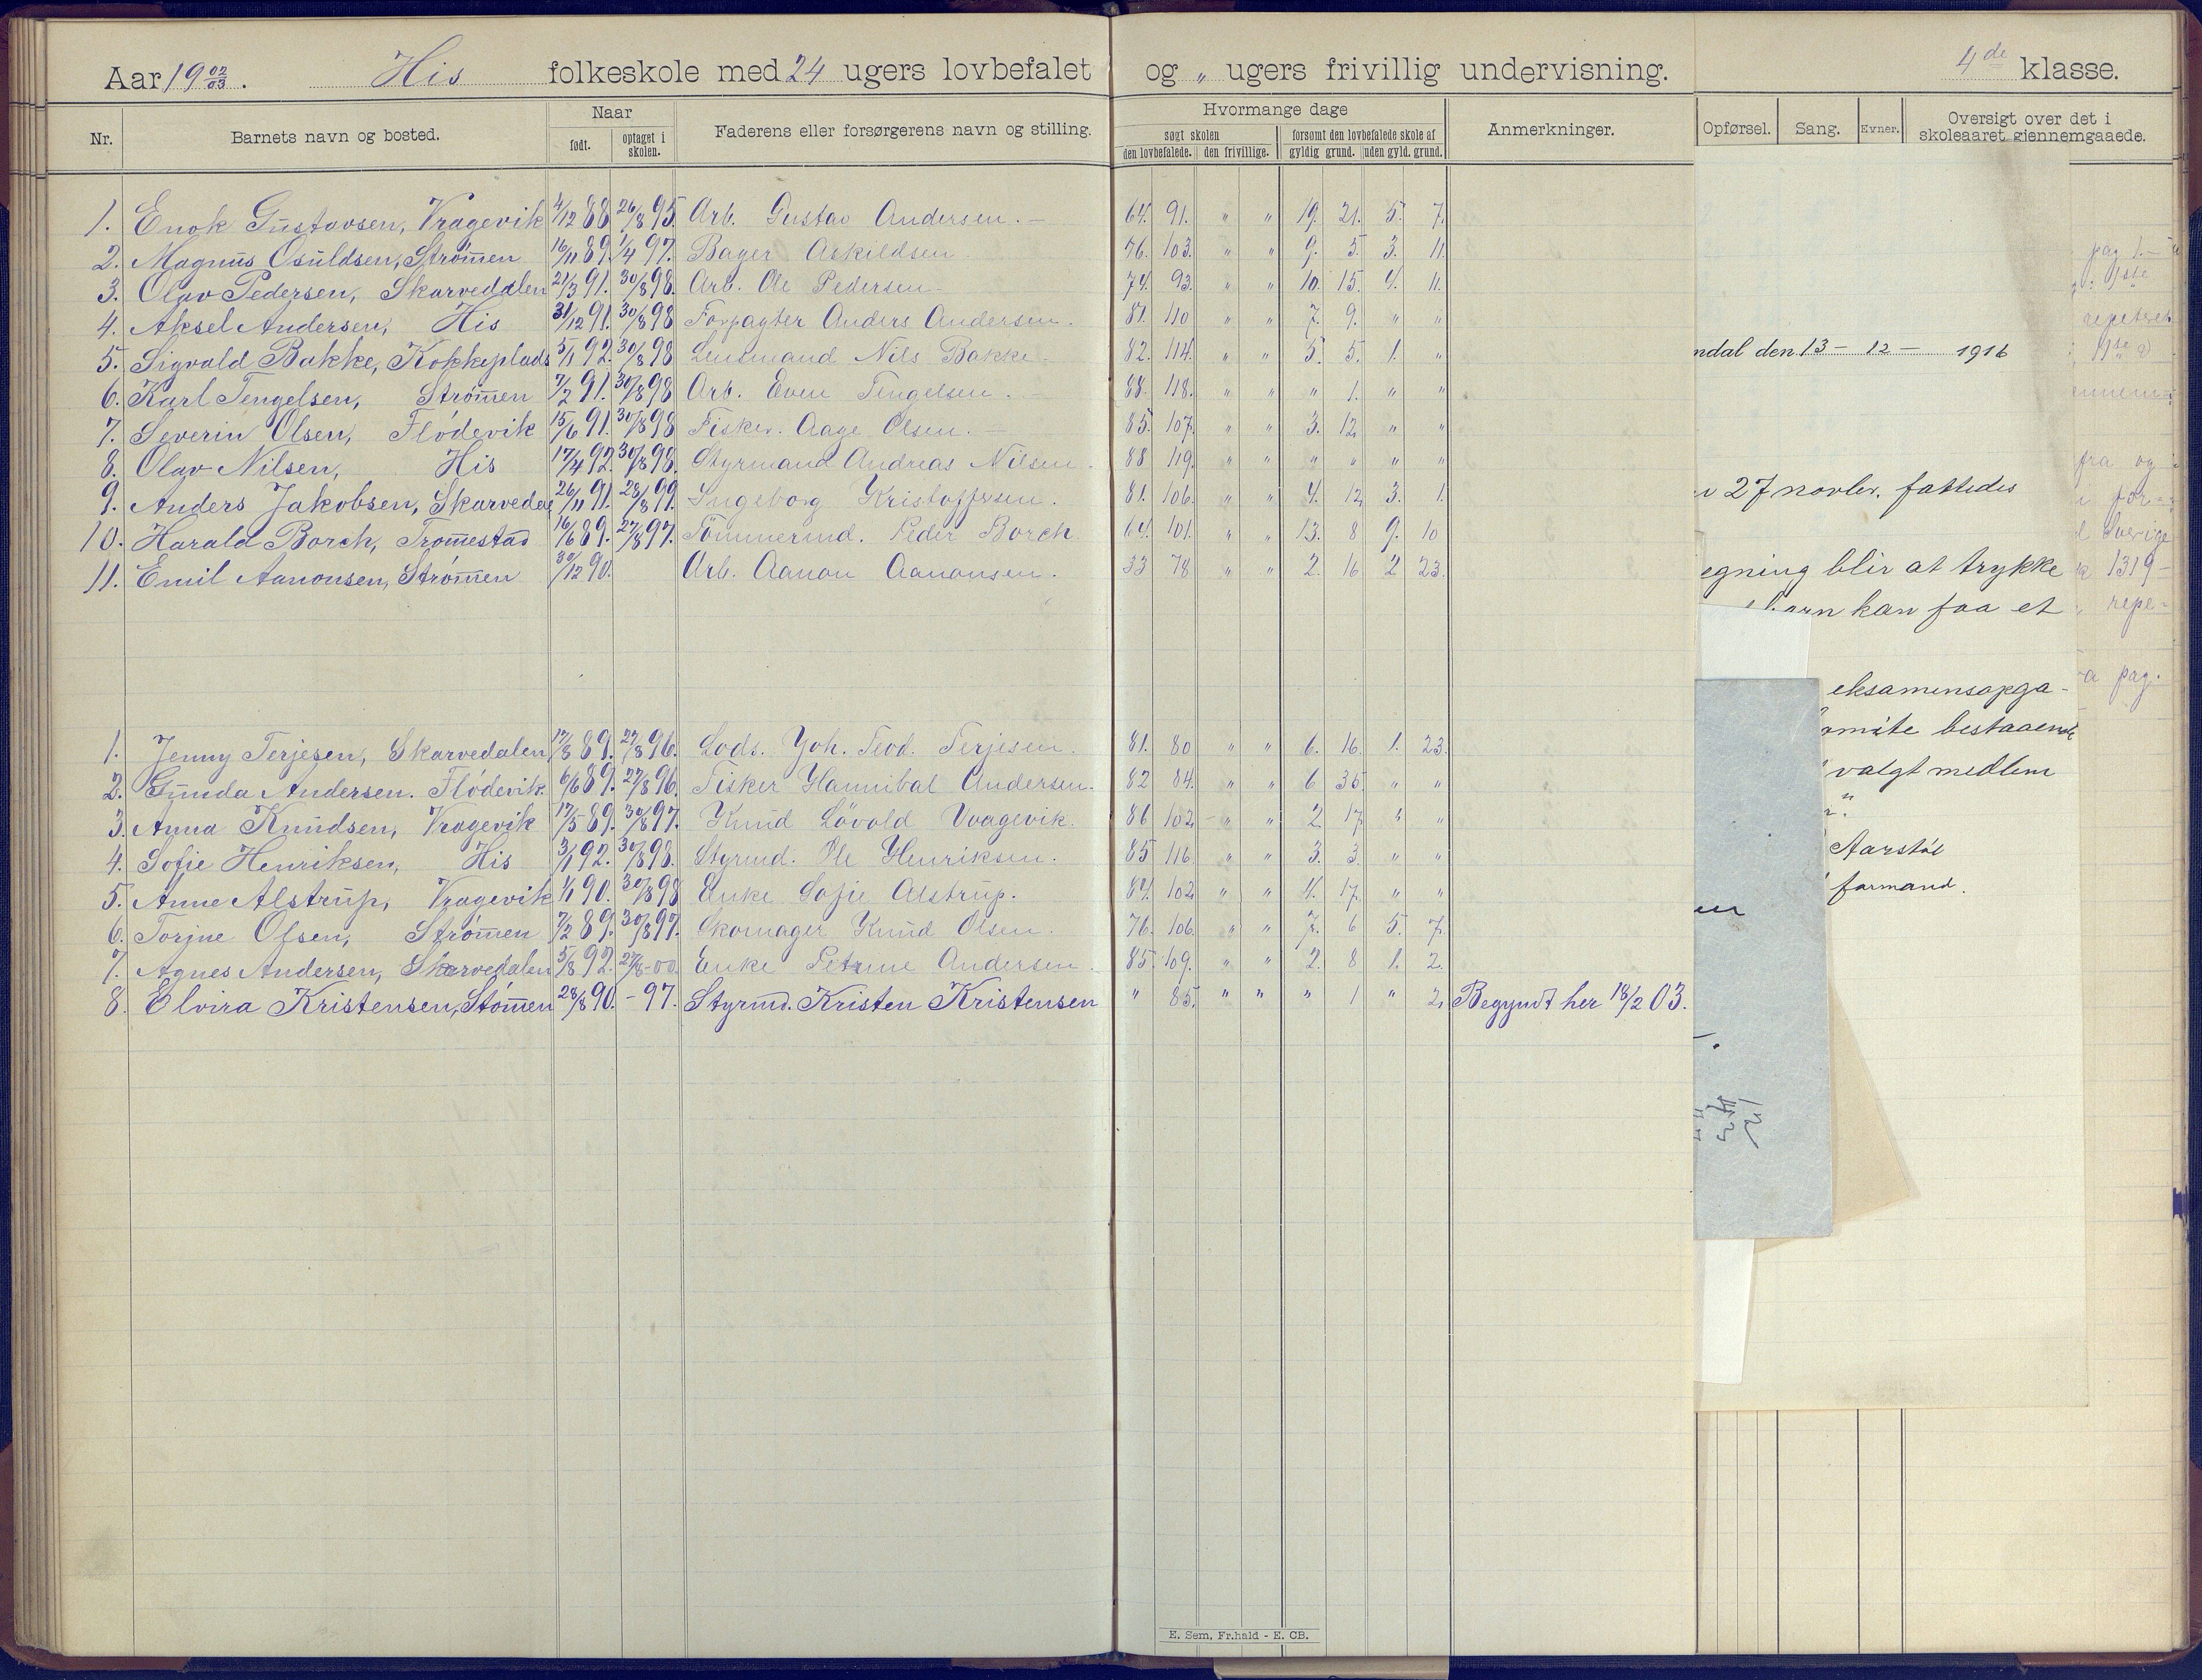 Aar 19 02/03. His folkeskole med 24 ugers lovbefalet og „ ugers frivillig undervisning. 4de klasse.
Nr. Barnets navn og bosted. Naar født. optaget i skolen. Faderens eller forsørgerens navn og stilling. Hvormange dage søgt skolen den lovbefalede. den frivillige. forsømt den lovbefalede skole af gyldig grund. uden gyld. grund. Anmerkninger. Opførsel. Sang. Evner. Oversigt over det i skoleaaret gjennemgaaede.
1. Enok Gustavsen, Vragevik 4/12 88 26/8 95. Arb. Gustav Andersen. – 64. 91. „ „ 19. 21. 5. 7.
2. Magnus Osuldsen, Strømen 16/11 89. 1/4 97. Bager Askildsen 76. 103. „ „ 9. 5. 3. 11.
3. Olav Pedersen, Skarvedalen 21/3 91. 30/8 98. Arb. Ole Pedersen 74. 93. „ „ 10. 15. 4. 11.
4. Aksel Andersen, His 31/12 91. 30/8 98 Forpagter Anders Andersen. 81. 110 „ „ 7. 9. „ „
5. Sigvald Bakke, Kokkeplads 5/1 92. 30/8 98 Lensmand Nils Bakke 82. 114. „ „ 5. 5. 1. „
6. Karl Tengelsen, Strømen 7/2 91. 30/8 98 Arb. Even Tengelsen. 88. 118. „ „ „ 1. „ „
7. Severin Olsen, Flödevik 15/6 91. 30/8 98 Fisker. Aage Olsen. 85. 107. „ „ 3. 12. „ „
8. Olav Nilsen, His 17/4 92. 30/8 98. Styrmand Andreas Nilsen. 88 119. „ „ „ „ „ „
9. Anders Jakobsen, Skarvedal 26/11 91. 28/8 99. Ingeborg Kristoffersen. 81. 106. „ „ 4. 12. 3. 1.
10. Harald Borch, Tromestad 16/6 89. 27/8 97. Tömmermd. Peder Borch. 64. 101. „ „ 13. 8 9. 10
11. Emil Aanonsen, Strømen 30/12 90. Arb. Aanon Aanonsen. 33 78 „ „ 2. 16 2 23.
1. Jenny Terjesen, Skarvedalen 17/8 89. 27/8 96. Lods. Joh. Teod. Terjesen. 81. 80 „ „ 6. 16. 1. 23.
2. Gunda Andersen. Flödevik. 6/6 89. 27/8 96. Fisker Hannibal Andersen. 82 84. „ „ 6 35. „ „
3. Anna Knudsen, Vragevik 17/5 89. 30/8 97. Knud Lövold Vragevik. 86 102 „ „ 2. 17. „ „
4. Sofie Henriksen, His 3/1 92. 30/8 98. Styrmd. Ole Henriksen. 85 116. „ „ 3. 3. „ „
5. Anne Alstrup, Vragevik 1/1 90. 30/8 98 Enke Sofie Alstrup. 84. 102 „ „ 4. 17. „ „
6. Torjne Olsen, Strømen 7/2 89. 30/8 97. Skomager Knud Olsen. 76. 106. „ „ 7. 6 5. 7.
7. Agnes Andersen, Skarvedalen 5/8 92. 27/8-00. Enke Petrine Andersen. 85. 109. „ „ 2. 8 1. 2.
8. Elvira Kristensen, Stömen 28/8 90. – 97. Styrmd. Kristen Kristensen „ 85. „ „ „ 1 „ 2. Begyndt her 18/2 03.
ndal den 13 – 12 – 1916
27 novbr. fattedes
egning blir at trykke
barn kan faa et
eksamensopga-
omite bestaaende
valgt medlem
Aarstöl
formand.
pag 1. –
1ste
repeteret
fra og
for-
Sverige
1319 –
repe-
pag.
E. Sem, Fr.hald - E. CB.